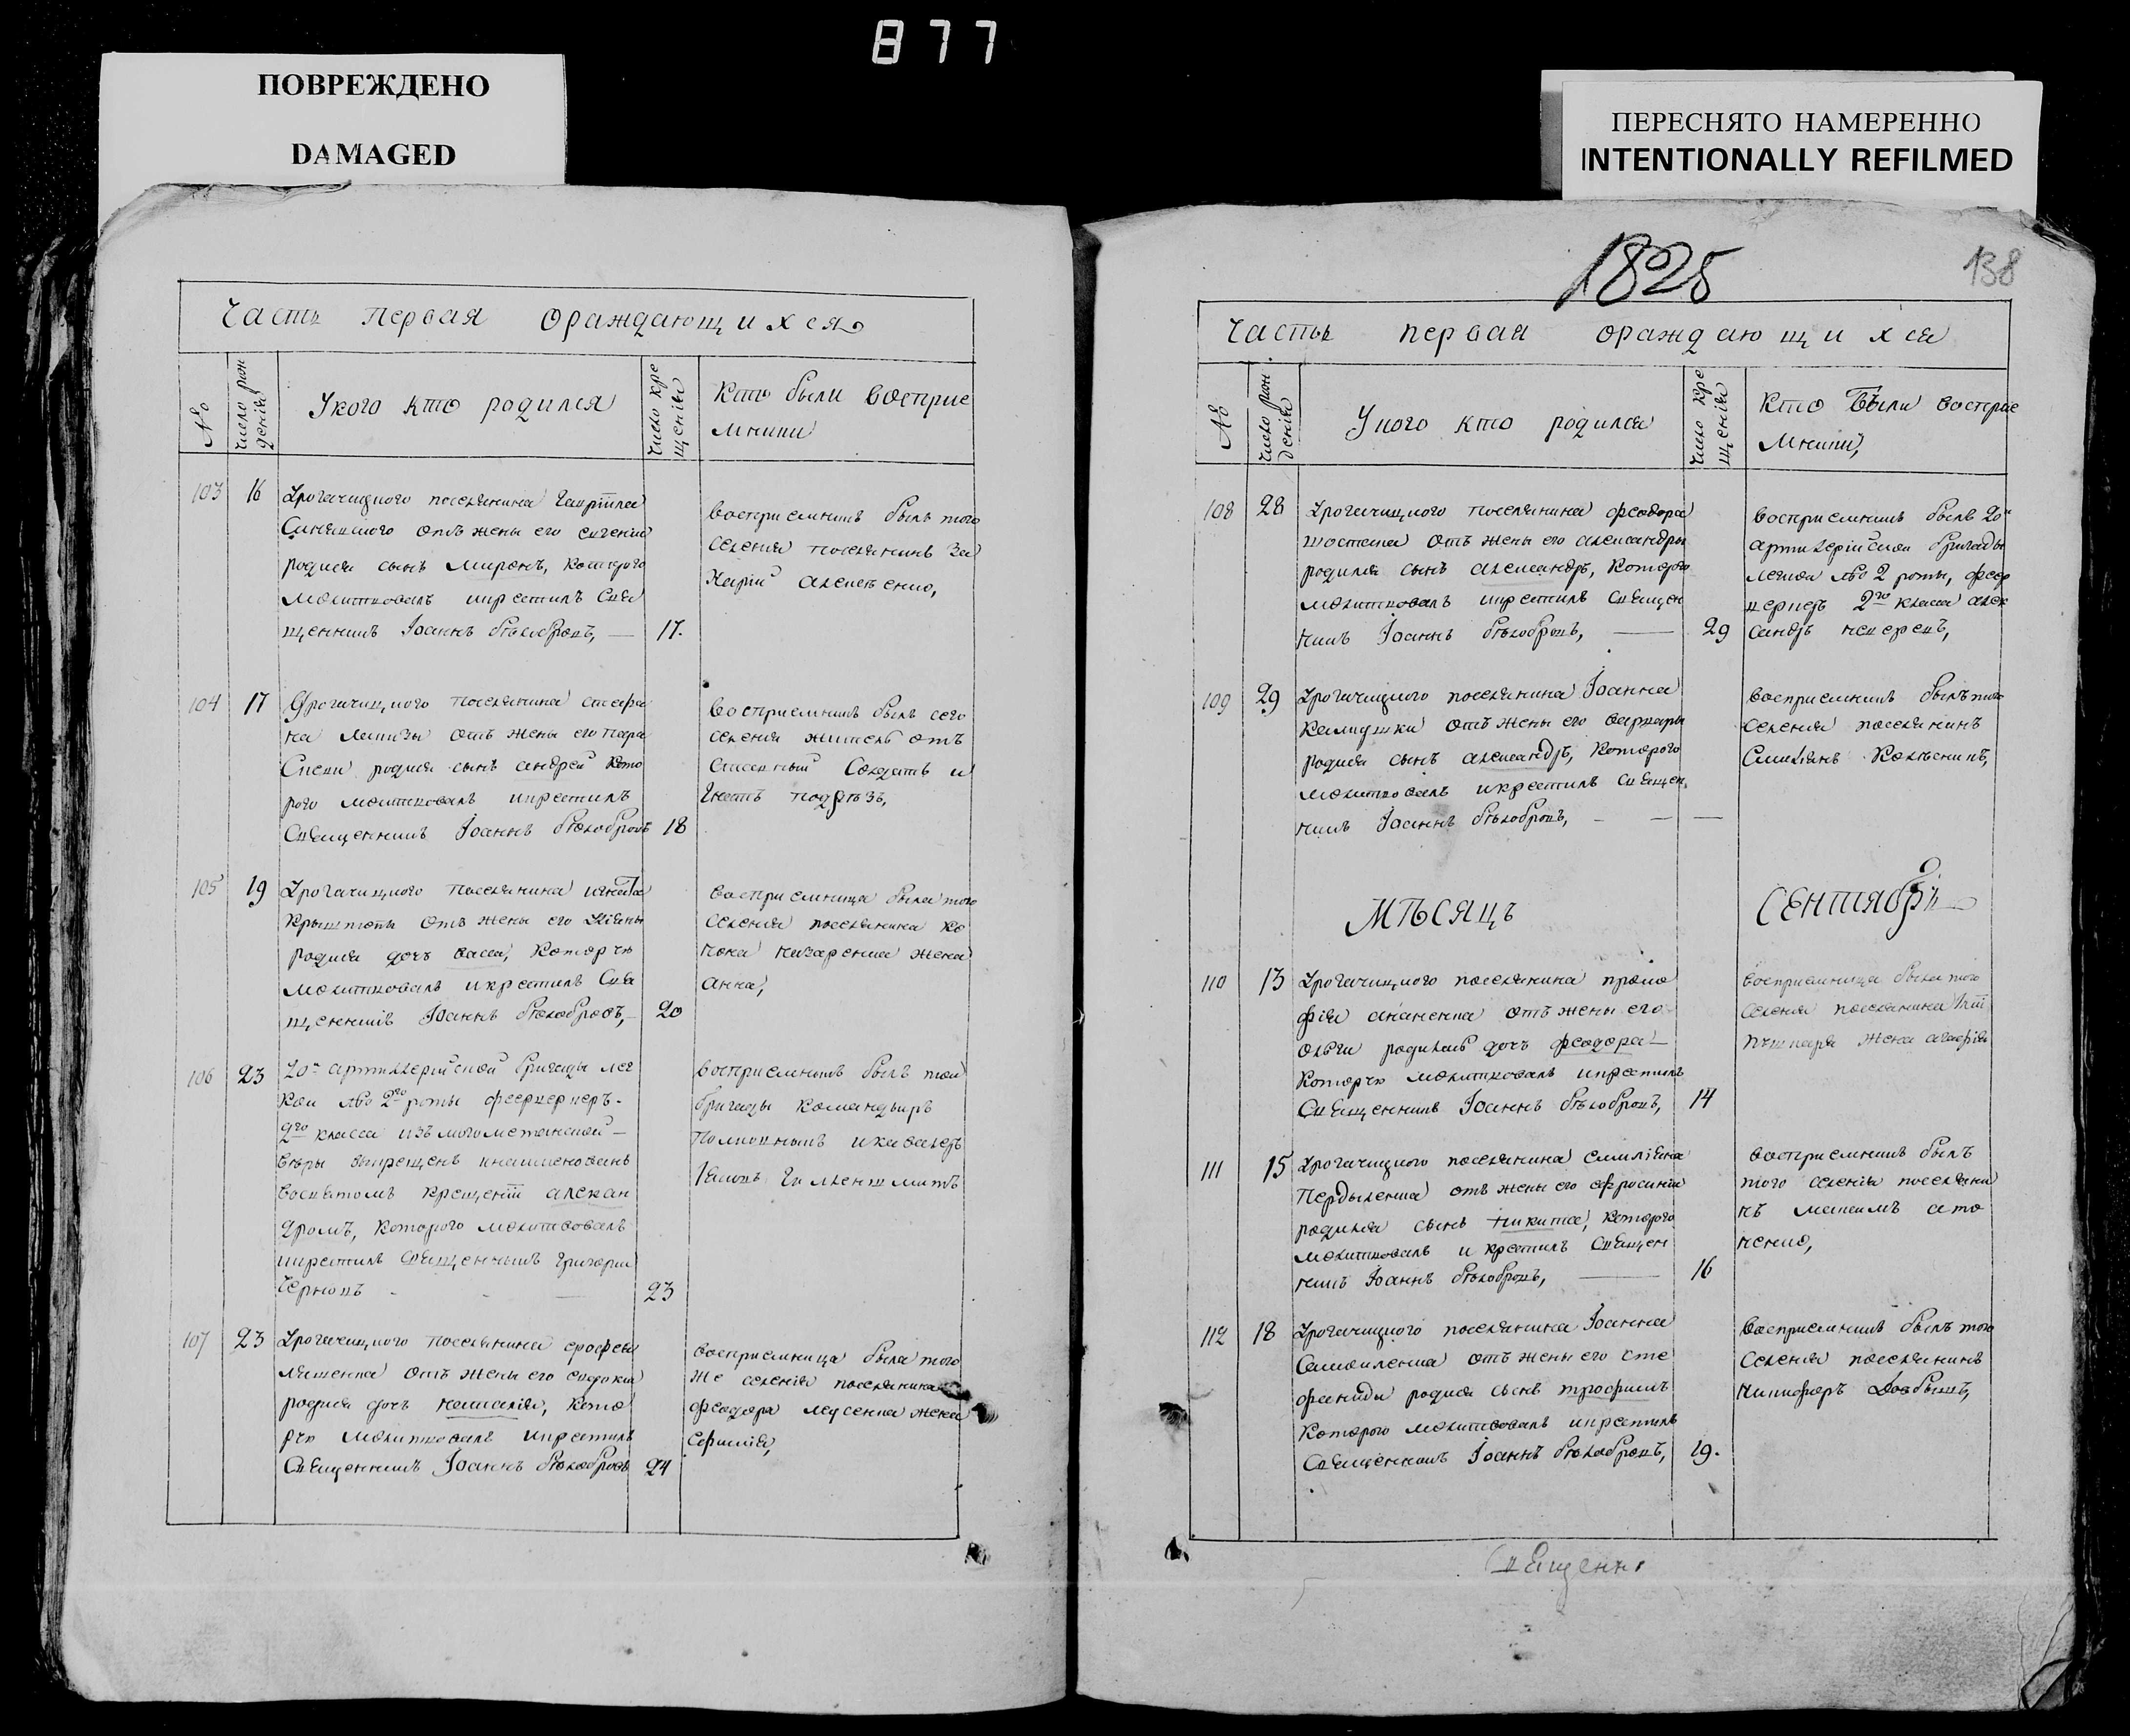 877
ПОВРЕЖДЕНО
DAMAGED
ПЕРЕСНЯТО НАМЕРЕННО
INTENTIONALLY REFILMED
Часть первая ораждающихся
№
число рож
денія
Укого кто родился
число кре
щенія
Кто были восприе
мники
103 16
Урогачицкого поселянина Гавріила
отъ жены его евгеніи
родися сынъ миронъ, которого
молитвовалъ икрестилъ Свя
щенникъ Іоаннъ бѣлобровъ, 17.
восприемникъ былъ того
селенія поселянинъ За
харій алексѣенко,
104 17
Урогачицкого поселянина стефа
на отъ жены его пара
скеви родися сынъ андрей кото
рого молитвовалъ икрестилъ
Священникъ Іоаннъ бѣлобровъ 18
восприемникъ былъ сего
селенія житель отъ
ставный Солдатъ и
гнатъ подрѣзъ,
105 19
Урогачицкого поселянина игната
отъ жены его
родися дочь васса, которую
молитвовалъ икрестилъ Свя
щенникъ Іоаннъ бѣлобровъ, 20
восприемница была того
селенія поселянина ко
нона назаренка жена
анна,
106 23
20й артиллерійской бригады лег
кой №о 2го роты феерверкеръ
2го класса изъ могометанской
вѣры выкрещенъ инаименованъ
восвятомъ крещеніи алекан
дромъ, которого молитвовалъ
икрестилъ Священникъ Григорій
Чернювъ 23
восприемникъ былъ той
бригады командыръ
полковникъ икавалеръ
107 23
Урогачицкого поселянина ерофея
ляшенка отъ жены его евдокіи
родися дочъ наталія, кото
рую молитвовалъ икрестилъ
Священникъ Іоаннъ бѣлобровъ 24
восприемница была того
же селенія поселянина
феодора жена
евфимія,
1825
138
Часть первая ораждающихся
№
число рож
денія
Укого кто родился
число кре
щенія
Кто были восприе
мники,
108 28
Урогачицкого поселянина феодора
шостака отъ жены его александры
родился сынъ александръ, которого
молитвовалъ икрестилъ Священ
никъ Іоаннъ бѣлобровъ, 29
восприемникъ былъ 20й
артилерійской бригады
легкой №о 2 роты, феер
веркеръ 2го класса алек
сандръ
109 29
Урогачицкого поселянина Іоанна
Калидшки отъ жены его варвары
родися сынъ александръ, которого
молитвовалъ икрестилъ Священ
никъ Іоаннъ бѣлобровъ,
восприемникъ былъ того
селенія поселянинъ
Емиліянъ Колѣсникъ,
Мѣсяцъ Сентябрь
110 13
Урогачицкого поселянина проко
фія ананенка отъ жены его
ольги родилась дочъ феодора
которую молитвовалъ икрестилъ
Священникъ Іоаннъ бѣлобровъ, 14
восприемница была того
селенія поселянина
пушкаря жена агафія
111 15
Урогачицкого поселянина емиліяна
Пердыленка отъ жены его ефросиніи
родился сынъ никита, которого
молитвовалъ и крестилъ Священ
никъ Іоаннъ бѣлобровъ, 16
восприемникъ былъ
того селенія поселяни
нъ максимъ ата
ненко,
112 18
Урогачицкого поселянина Іоанна
Самойленка отъ жены его сте
фаниды родися сынъ трофимъ
которого молитвовалъ икрестилъ
Священникъ Іоаннъ бѣлобровъ, 19.
восприемникъ былъ того
селенія поселянинъ
никифоръ Довбышъ,
Священни